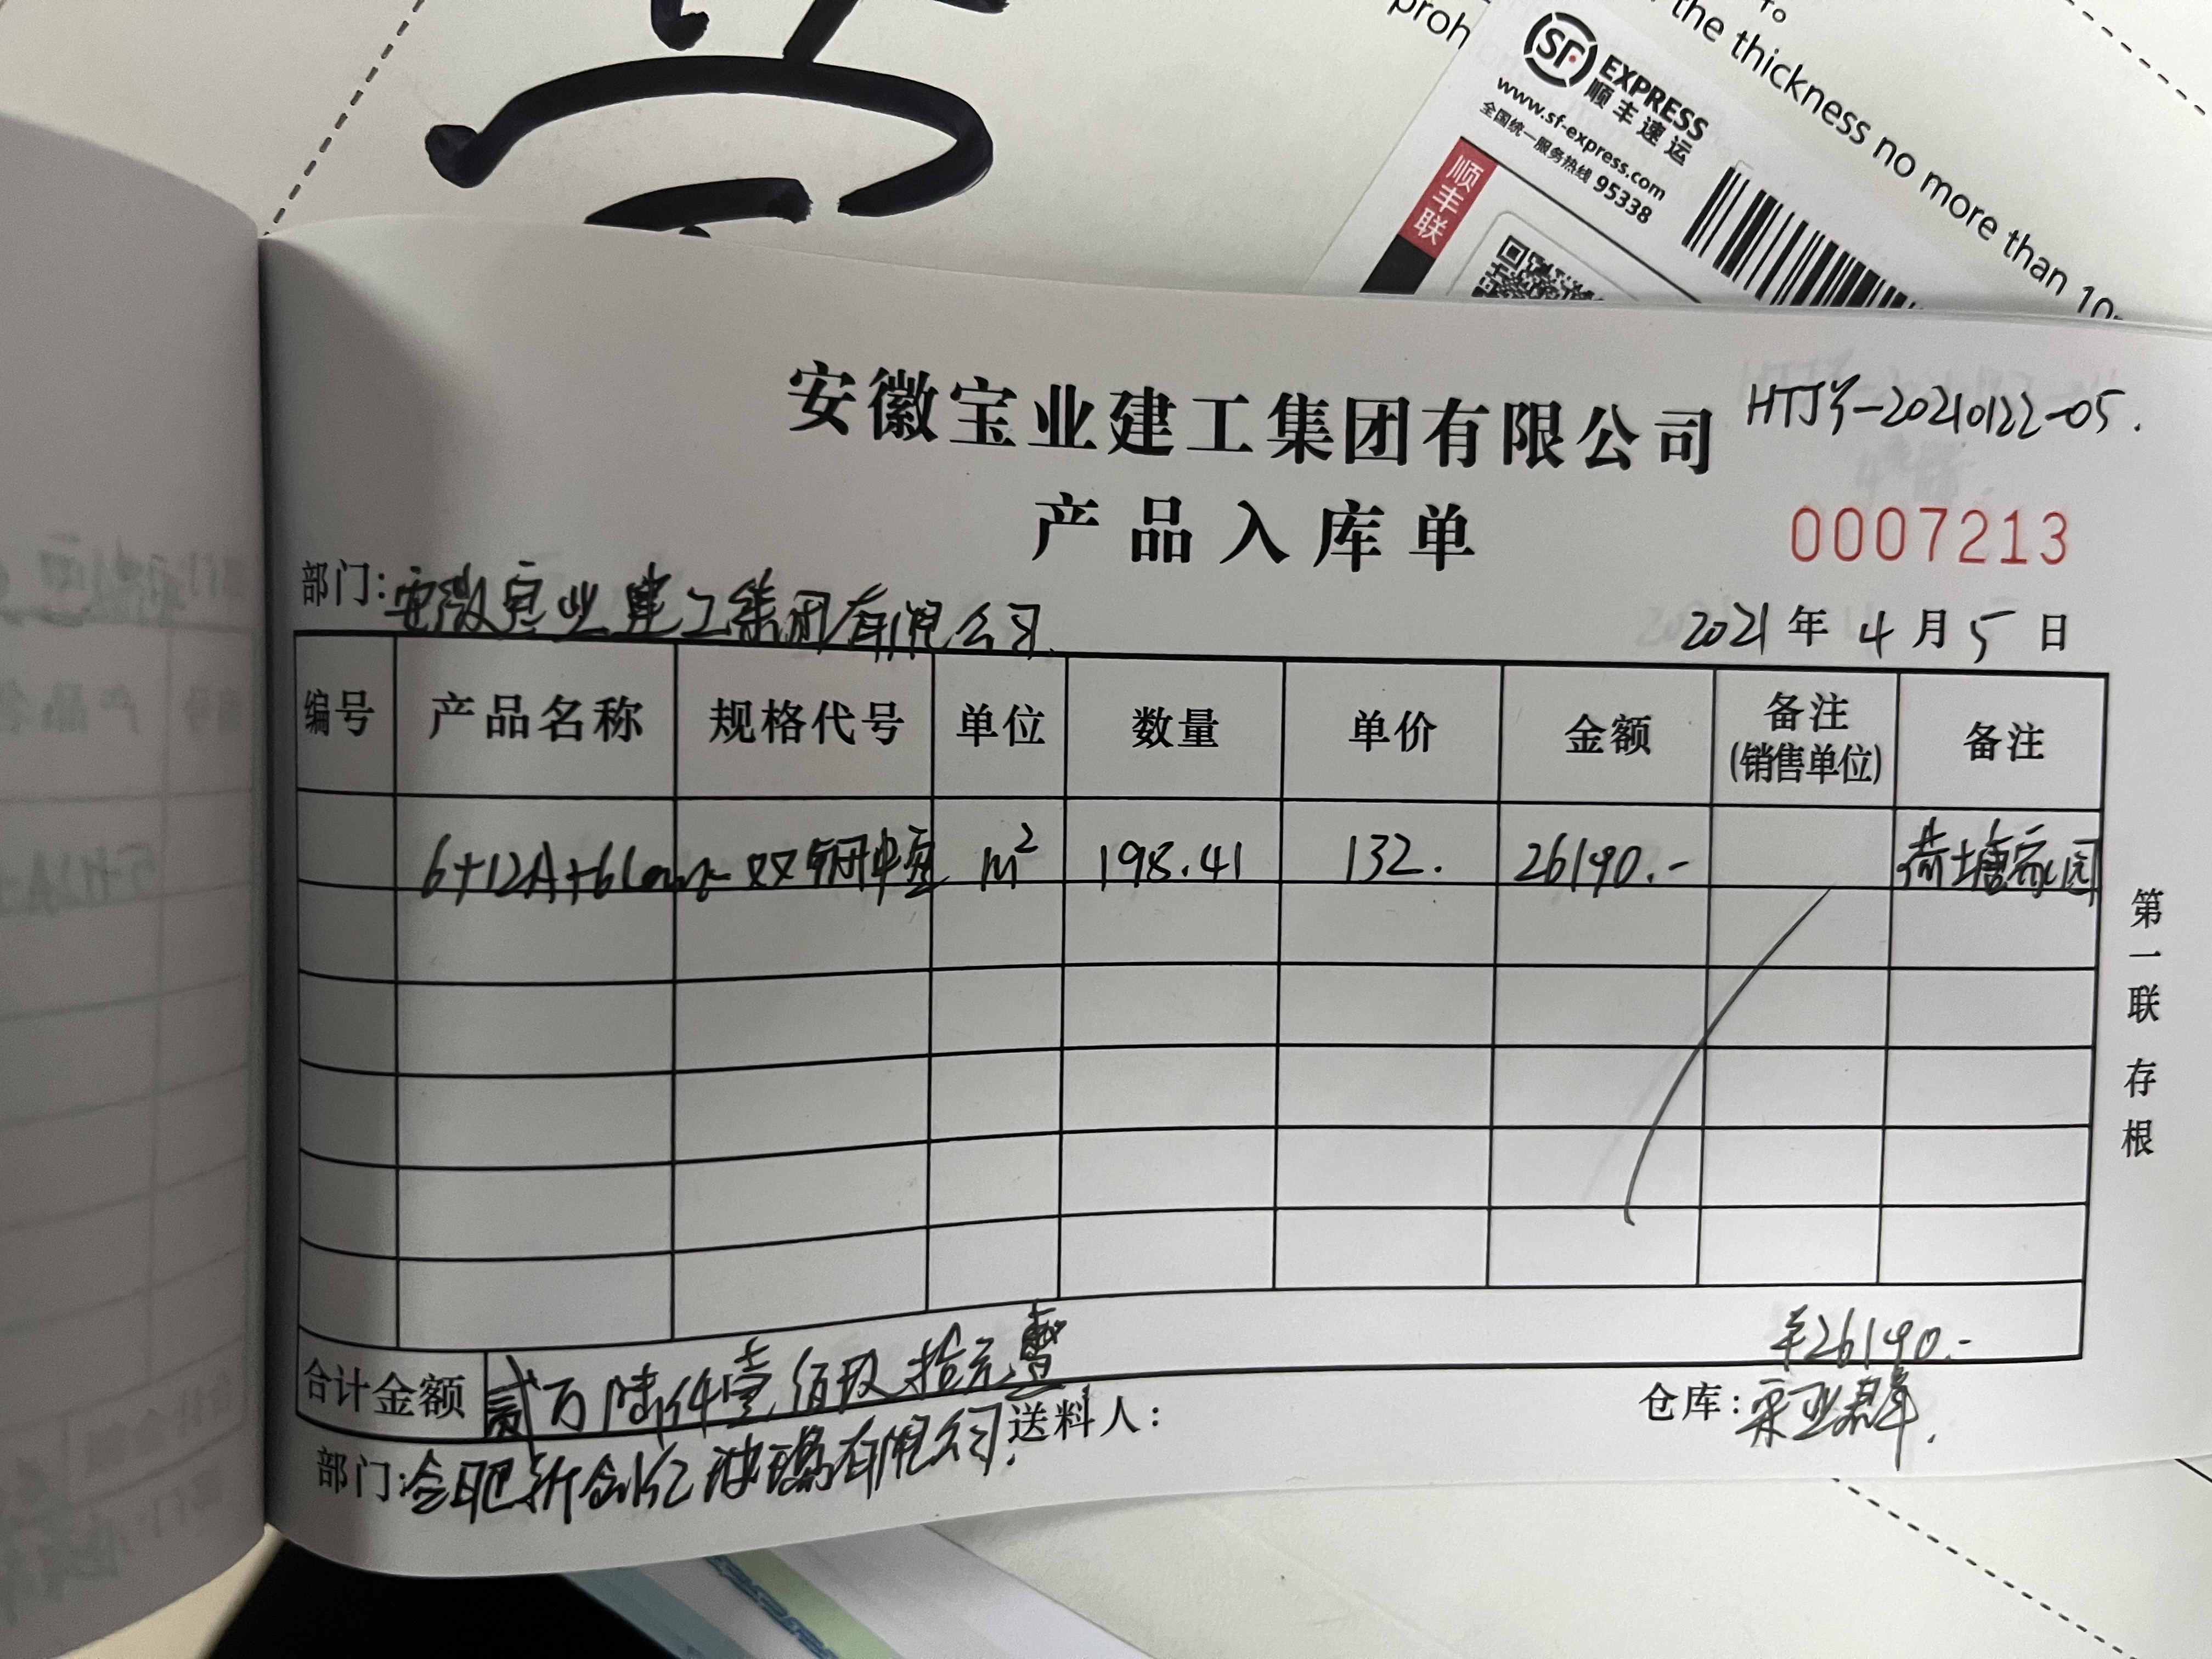 to
the thickness no more than 10
proh
SF EXPRESS
顺丰速运
www.sf-express.com
全国统一服务热线 95338
顺丰联
安徽宝业建工集团有限公司
HTJY-20210122-05.
产品入库单
0007213
部门:安徽宝业建工集团有限公司
2021年4月5日
编号 产品名称 规格代号 单位 数量 单价 金额 备注(销售单位) 备注
6+12A+6Low-e 双钢中空 m² 198.41 132. 26190.- 荷塘家园
第一联 存根
合计金额 贰万陆仟壹佰玖拾元整 ¥26190.-
部门:合肥新创亿玻璃有限公司. 送料人: 仓库: